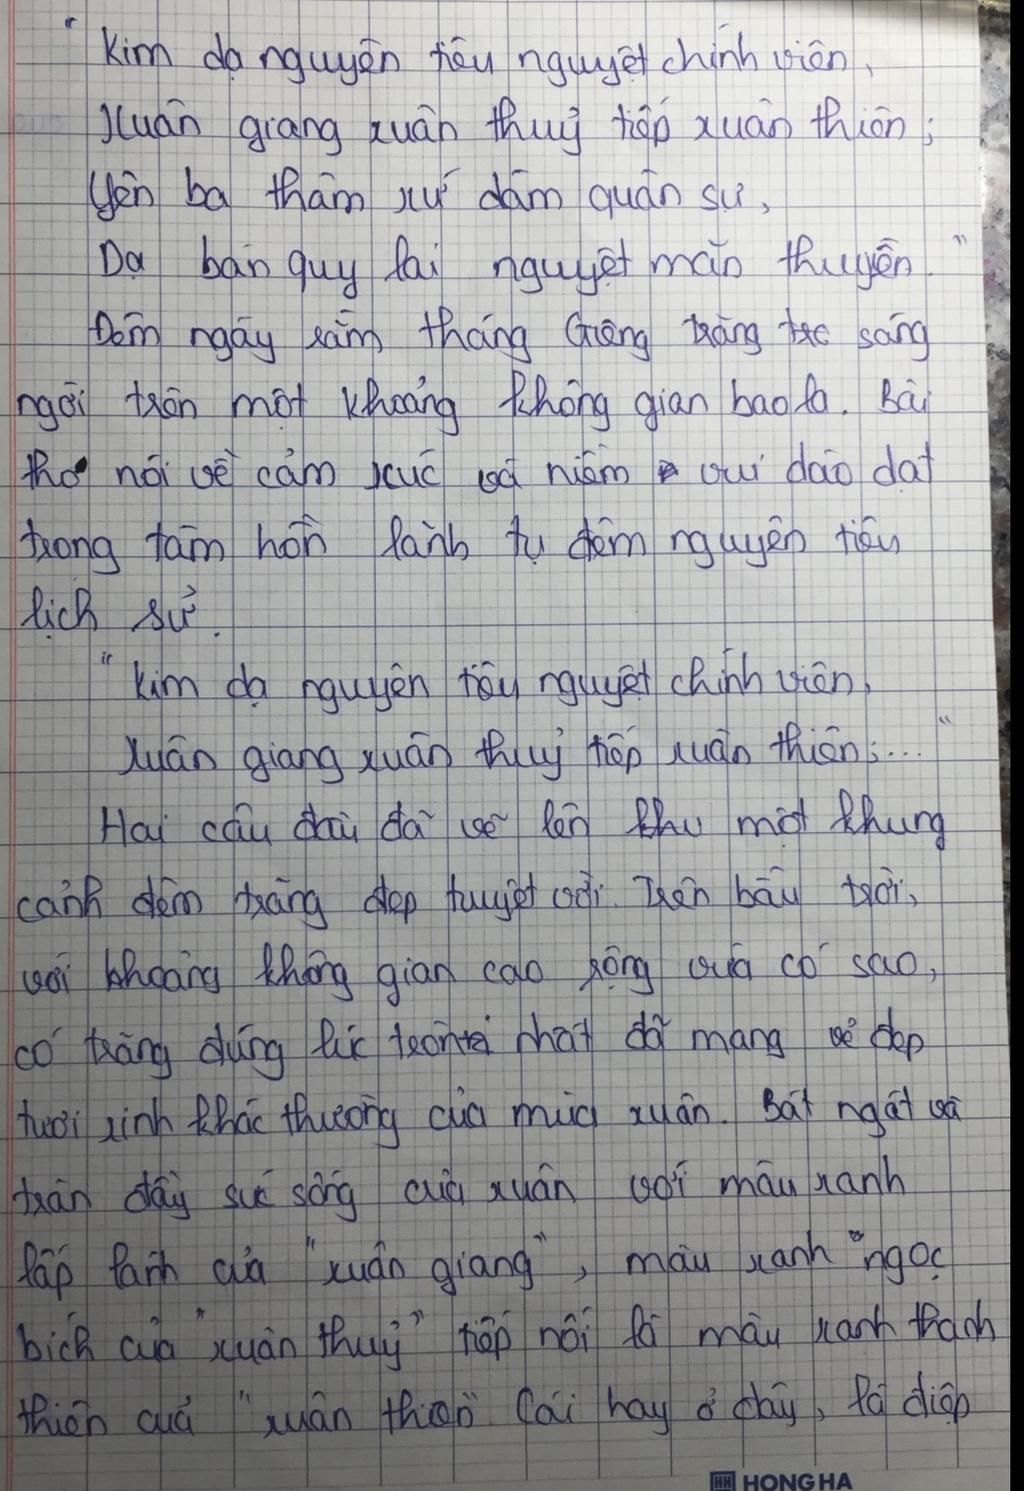 "Kim dạ nguyên tiêu nguyệt chính viên,
Xuân giang xuân thuỷ tiếp xuân thiên;
Yên ba thâm xứ đàm quân sự,
Dạ bán quy lai nguyệt mãn thuyền."
Đêm ngày rằm tháng Giêng trăng sáng
ngời trên một khoảng không gian bao la. Bài
thơ nói về cảm xúc và niềm vui dào dạt
trong tâm hồn lãnh tụ đêm nguyên tiêu
lịch sử.
"Kim dạ nguyên tiêu nguyệt chính viên,
Xuân giang xuân thuỷ tiếp xuân thiên;..."
Hai câu đầu đã vẽ lên một khung
cảnh đêm trăng đẹp tuyệt vời. Trên bầu trời,
với khoảng không gian cao rộng vừa có sao,
có trăng đúng lúc nhất đã mang vẻ đẹp
tươi xinh khác thường của mùa xuân. Bát ngát và
tràn đầy sức sống của xuân với màu xanh
lấp lánh của "xuân giang", màu xanh "ngọc
bích của "xuân thuỷ" tiếp nối là màu xanh thạch
thiên của "xuân thiên" Cái hay ở đây, là điệp
HH HONG HA